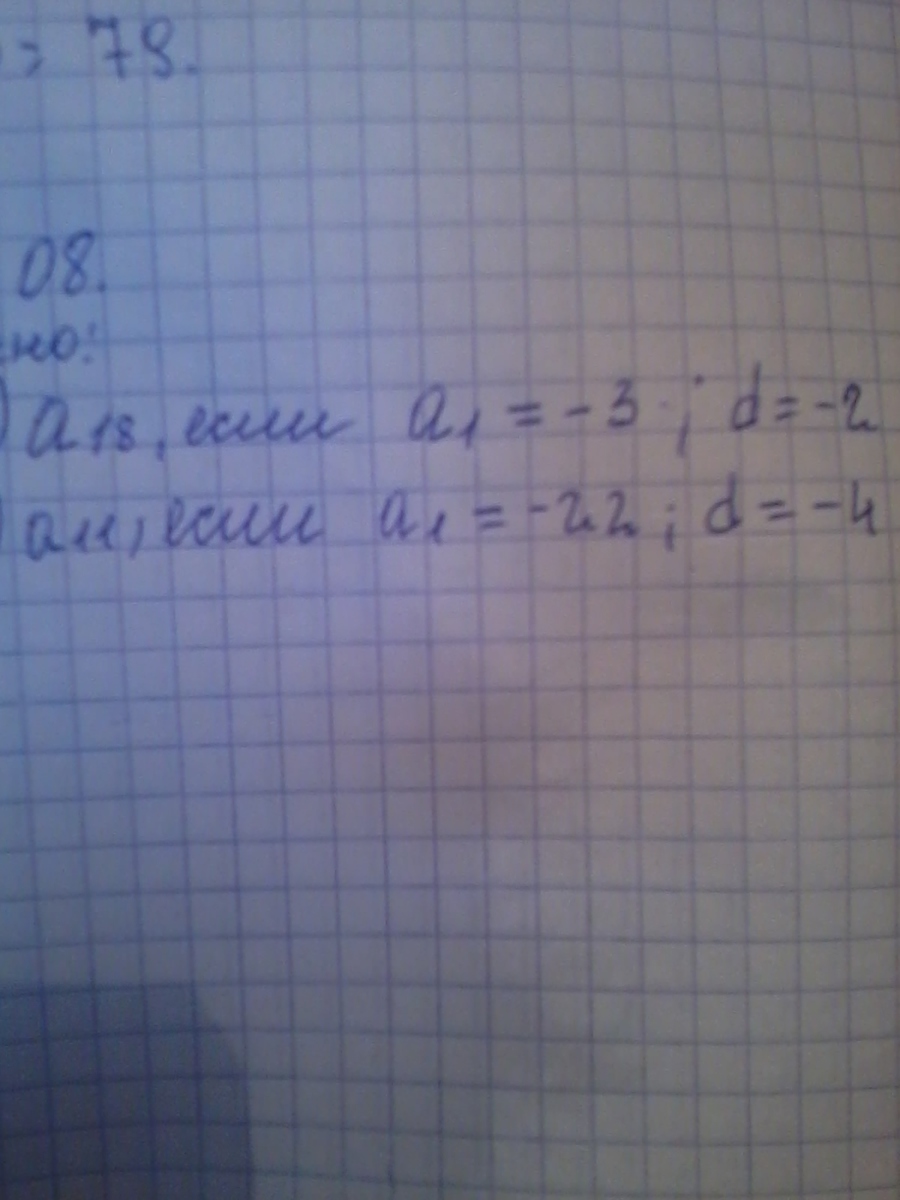 = 78.
08.
но:
) a18, если a1 = -3 ; d = -2
) a11, если a1 = -22 ; d = -4